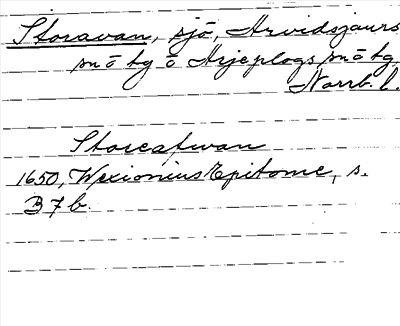 Storavan, sjö, Arvidsjaurs
sn ō tg ō Arjeplogs sn ō tg,
Norrb. l.
Storeafwan
1650, Wexionius Epitome, s.
B 7 b.